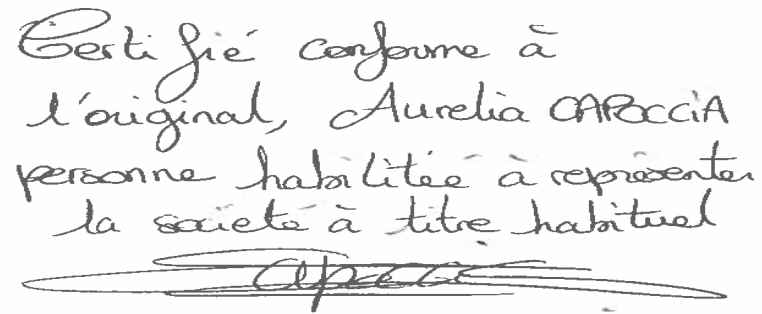 Certifié conforme à
l'original, Aurelia CAPOCCIA
personne habilitée à représenter
la société à titre habituel